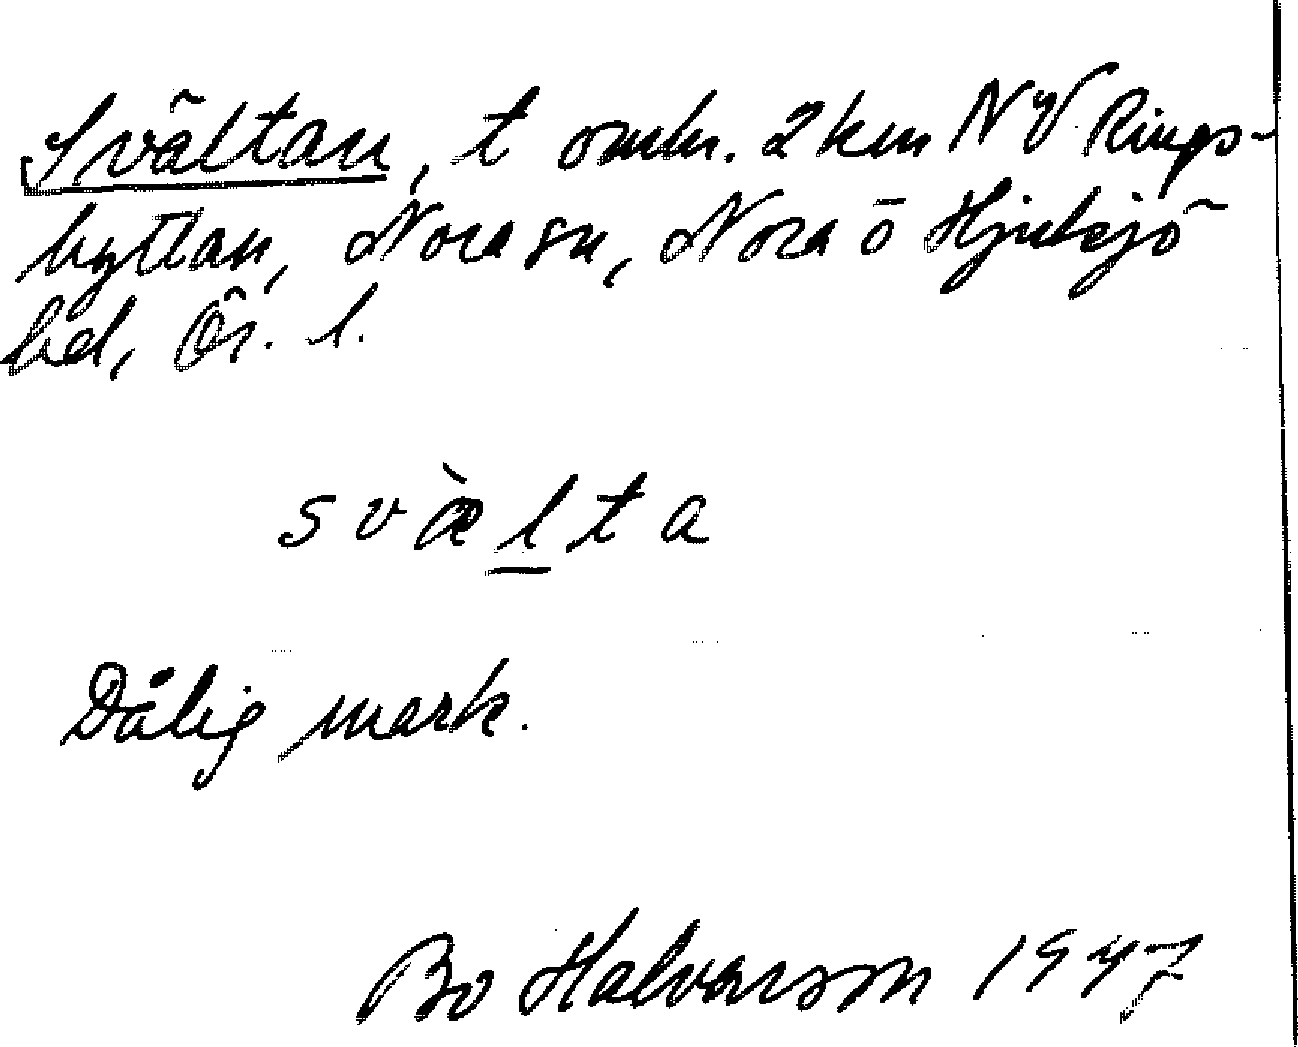 Svältan, t områ. 2 km NV Rings-
hyttan, Nora sn, Nora o Hjulsjö
bd, Ör. l.
s v æ̀ l t a
Dålig mark.
Bo Halvarson 1947